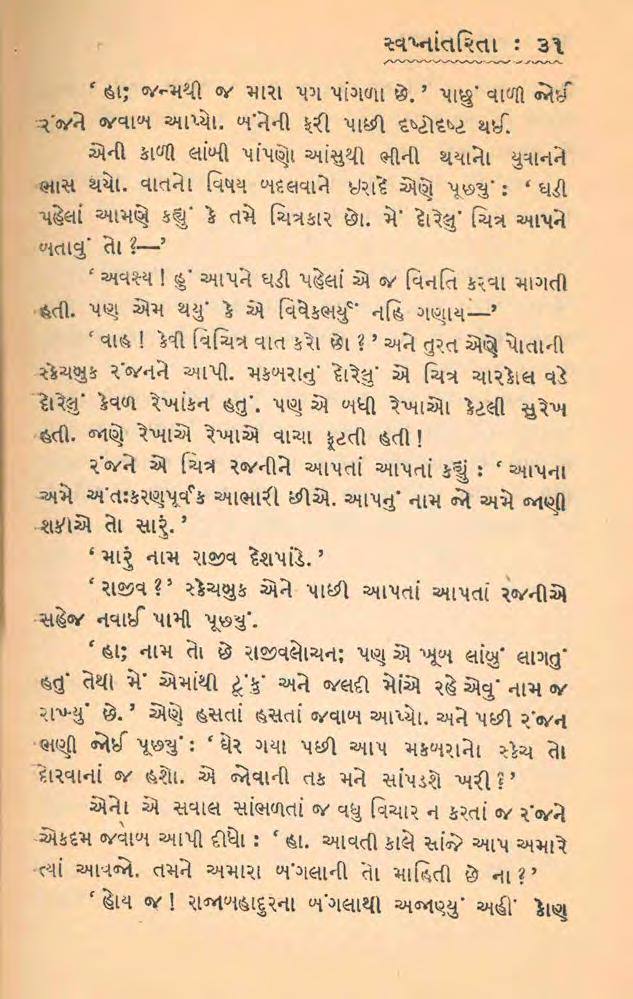 સ્વપ્નાંતરિતા : ૩૧
‘ હા; જન્મથી જ મારા પગ પાંગળા છે. ’ પાછું વાળી જોઈ
રંજને જવાબ આપ્યો. બંનેની ફરી પાછી દષ્ટોદષ્ટ થઈ.
એની કાળી લાંબી પાંપણો આંસુથી ભીની થયાનો યુવાનને
ભાસ થયો. વાતનો વિષય બદલવાને ઇરાદે એણે પૂછ્યું : ‘ ઘડી
પહેલાં આમણે કહ્યું કે તમે ચિત્રકાર છો. મેં દોરેલું ચિત્ર આપને
બતાવું તો ?—’
‘ અવશ્ય ! હું આપને ઘડી પહેલાં એ જ વિનતિ કરવા માગતી
હતી. પણ એમ થયું કે એ વિવેકભર્યું નહિ ગણાય—’
‘ વાહ ! કેવી વિચિત્ર વાત કરો છો ? ’ અને તુરત એણે પોતાની
સ્કેચબુક રંજનને આપી. મકબરાનું દોરેલું એ ચિત્ર ચારકોલ વડે
દોરેલું કેવળ રેખાંકન હતું. પણ એ બધી રેખાઓ કેટલી સુરેખ
હતી. જાણે રેખાએ રેખાએ વાચા ફૂટતી હતી !
રંજને એ ચિત્ર રજનીને આપતાં આપતાં કહ્યું : ‘ આપના
અમે અંતઃકરણપૂર્વક આભારી છીએ. આપનું નામ જો અમે જાણી
શકીએ તો સારું. ’
‘ મારું નામ રાજીવ દેશપાંડે. ’
‘ રાજીવ ? ’ સ્કેચબુક એને પાછી આપતાં આપતાં રજનીએ
સહેજ નવાઈ પામી પૂછ્યું.
‘ હા; નામ તો છે રાજીવલોચન; પણ એ ખૂબ લાંબું લાગતું
હતું તેથી મેં એમાંથી ટૂંકું અને જલદી મોંએ રહે એવું નામ જ
રાખ્યું છે. ’ એણે હસતાં હસતાં જવાબ આપ્યો. અને પછી રંજન
ભણી જોઈ પૂછ્યું : ‘ ઘેર ગયા પછી આપ મકબરાનો સ્કેચ તો
દોરવાનાં જ હશો. એ જોવાની તક મને સાંપડશે ખરી ? ’
એનો એ સવાલ સાંભળતાં જ વધુ વિચાર ન કરતાં જ રંજને
એકદમ જવાબ આપી દીધો : ‘ હા. આવતી કાલે સાંજે આપ અમારે
ત્યાં આવજો. તમને અમારા બંગલાની તો માહિતી છે ના ? ’
‘ હોય જ ! રાજાબહાદુરના બંગલાથી અજાણ્યું અહીં કોણ